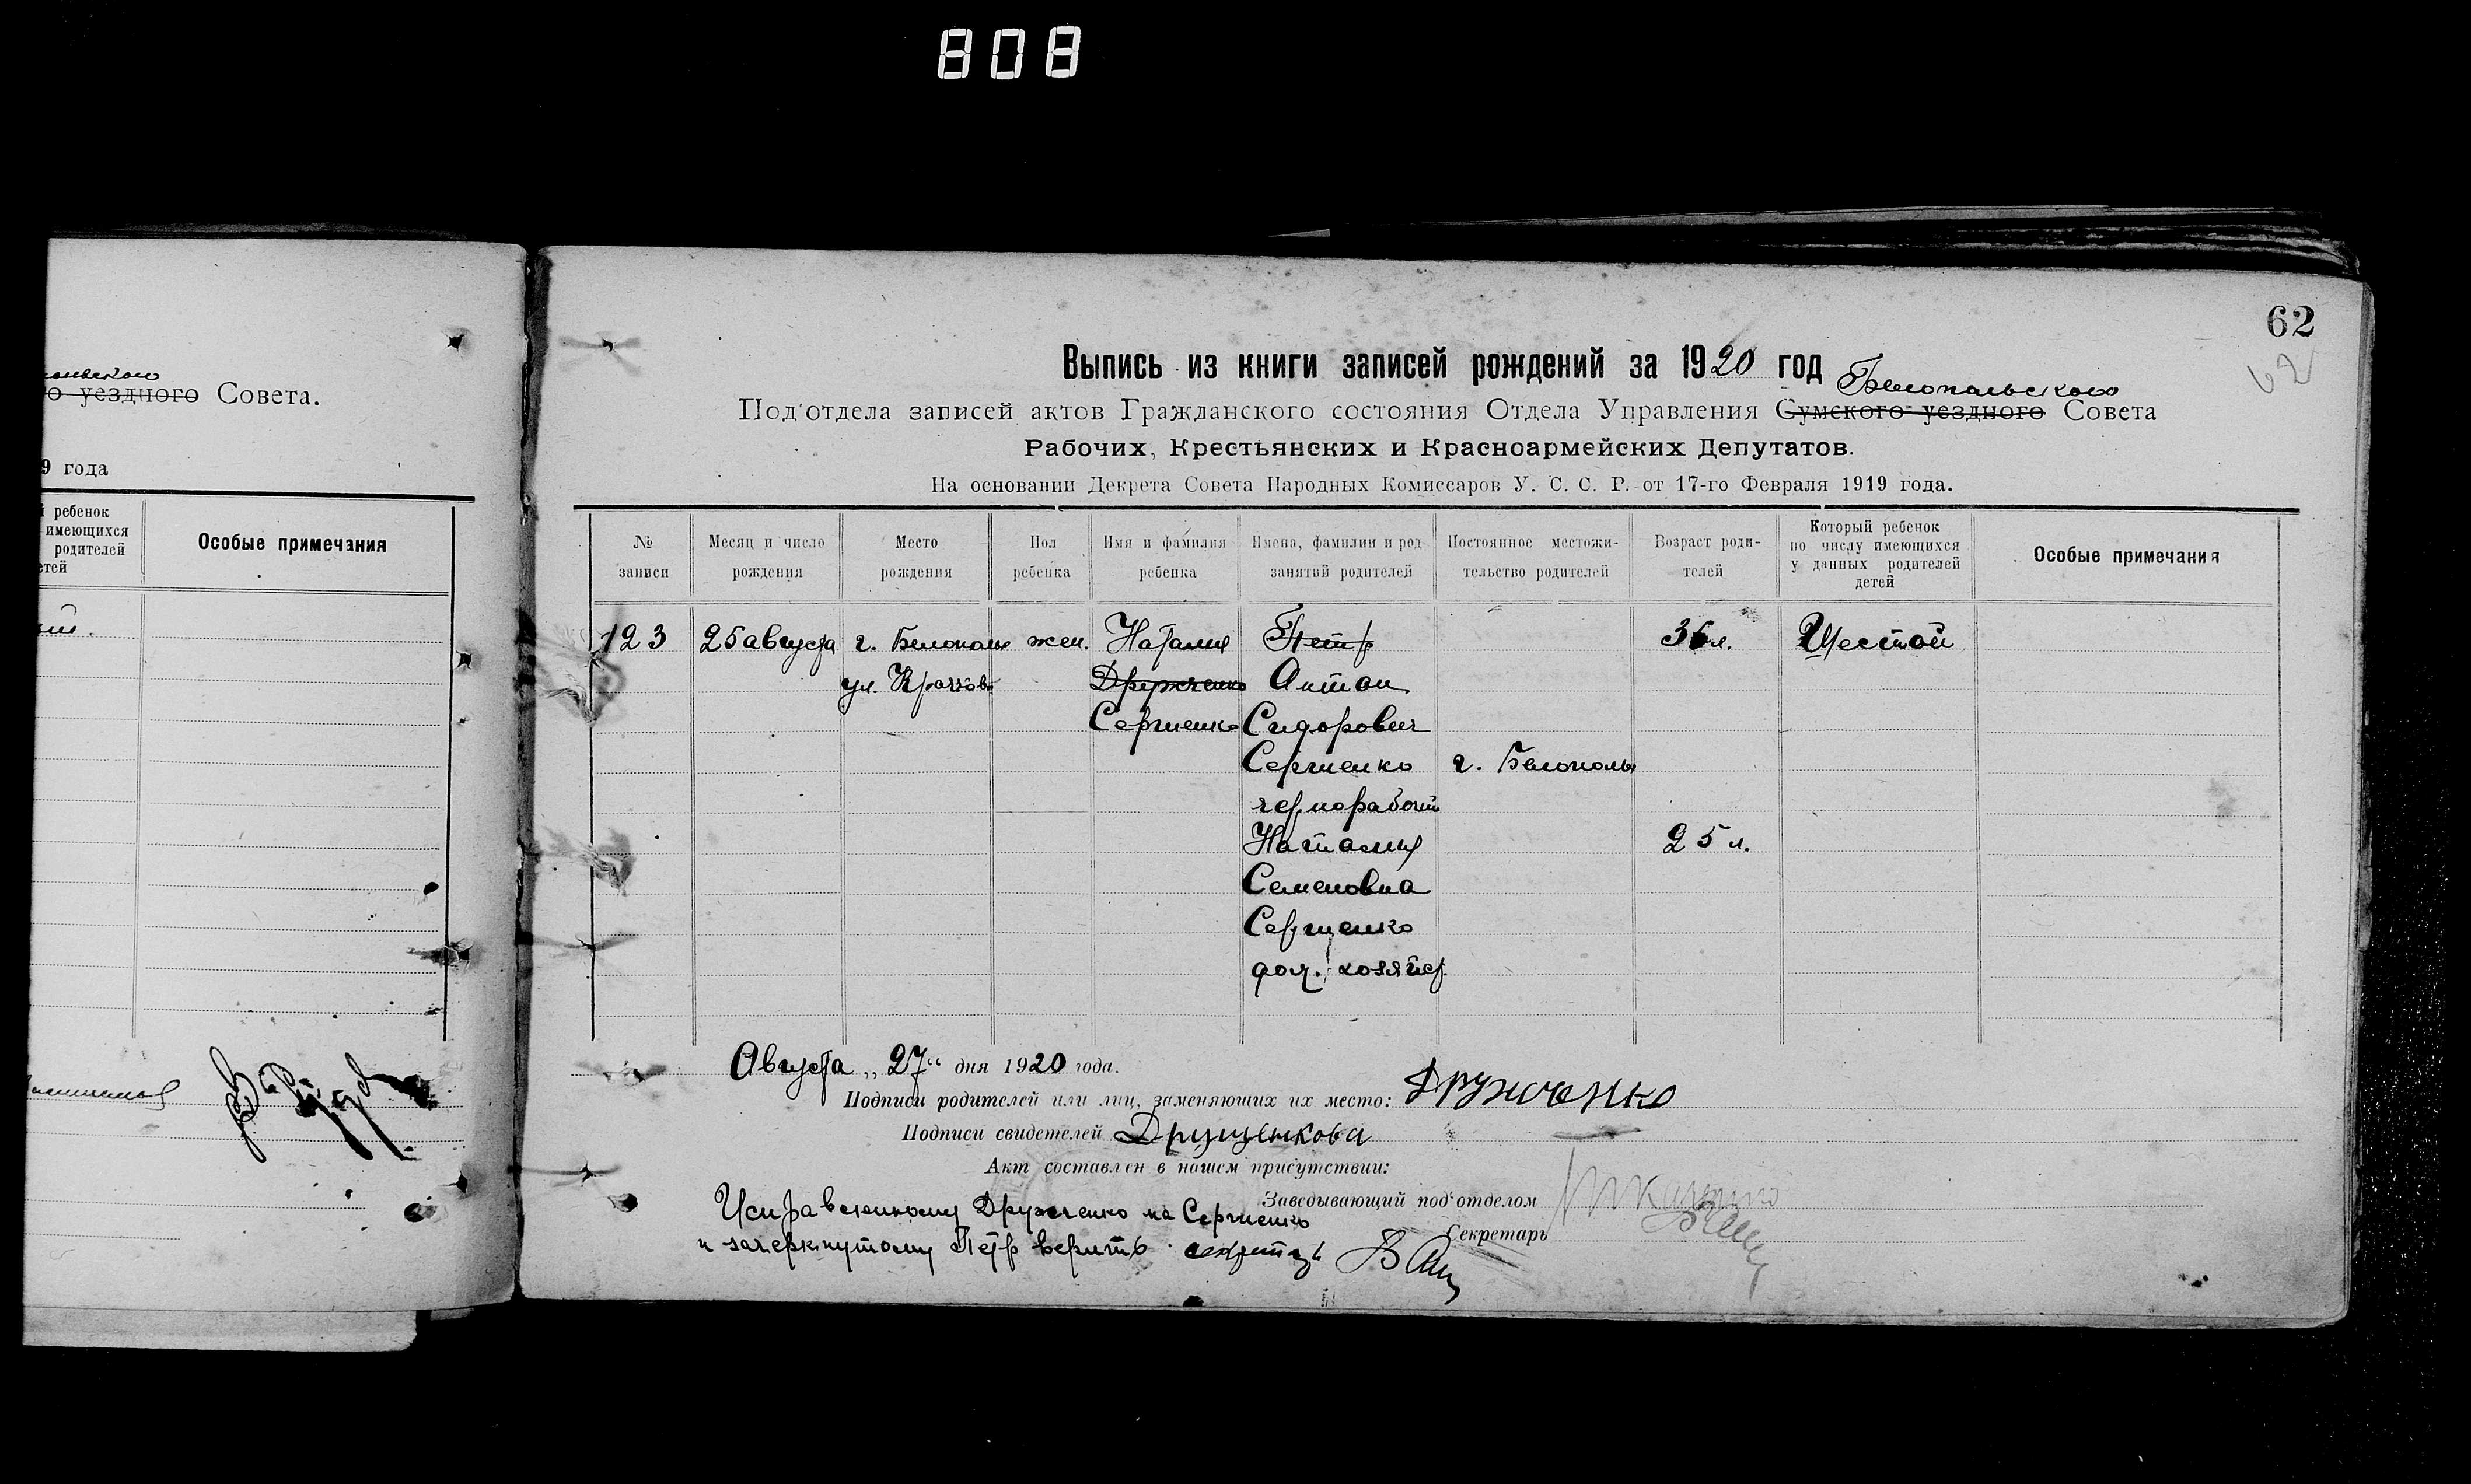 808
Совета.
о уездного
9 года
ребенок
имеющихся
родителей
Особые примечания
62
62
Выпись из книги записей рождений за 1920 год
Белопольского
Под'отдела записей актов Гражданского состояния Отдела Управления Сумского уездного Совета
Рабочих, Крестьянских и Красноармейских Депутатов.
На основании Декрета Совета Народных Комиссаров У. С. С. Р. от 17-го Февраля 1919 года.
№ записи
Месяц и число рождения
Место рождения
Пол ребенка
Имя и фамилия ребенка
Имена, фамилии и род занятий родителей
Постоянное местожительство родителей
Возраст родителей
Который ребенок по числу имеющихся у данных родителей детей
Особые примечания
123 25 августа г. Белополье жен. Наталия Петр 36 л. Шестой
ул. Дружченко Антон
Сергиенко Сидорович
Сергиенко г. Белополье
чернорабочий
Наталия 25 л.
Семеновна
Сергиенко
дом. хозяйст
Августа „27“ дня 1920 года.
Подписи родителей или лиц, заменяющих их место: Дружченко
Подписи свидетелей Друщенкова
Акт составлен в нашем присутствии:
Заведывающий под'отделом
Исправленному Дружченко на Сергиенко
Секретарь
и зачеркнутому Петр верить секретарь